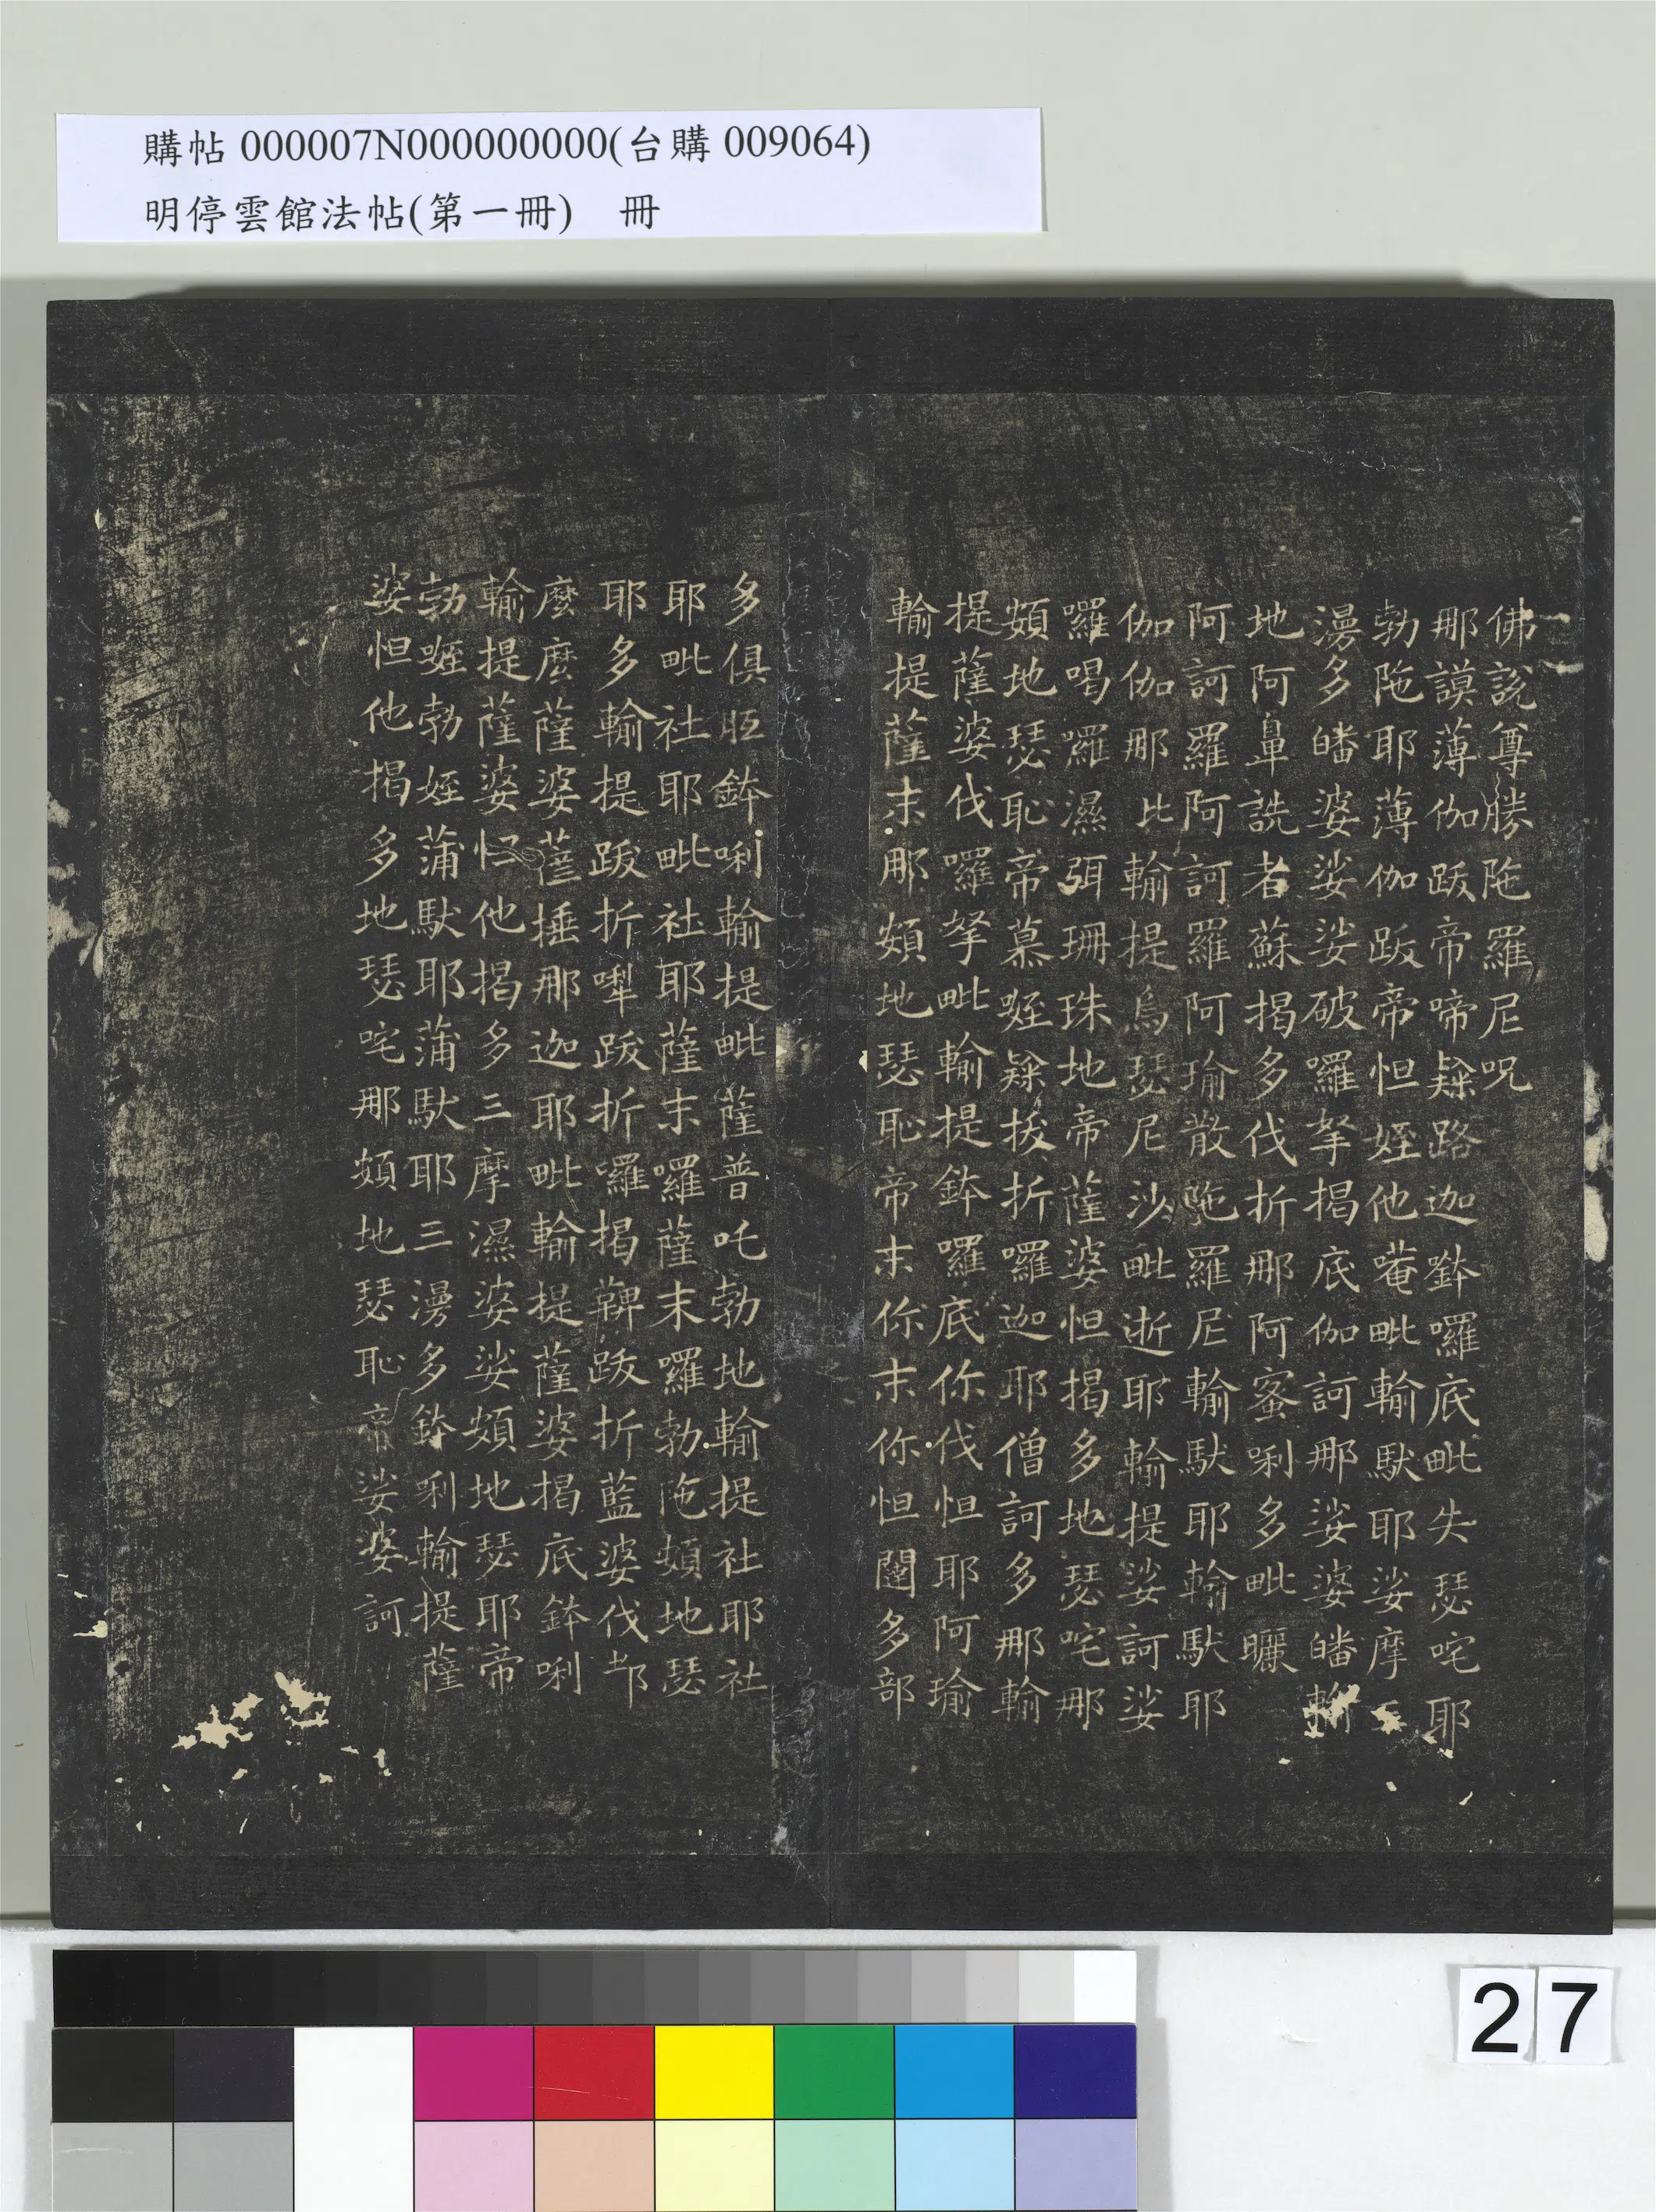 購帖 000007N000000000(台購 009064)
明停雲館法帖(第一冊) 冊
佛說尊勝陁羅尼呪
那謨薄伽跋帝啼隸路迦鉢囉底毗失瑟咤耶
勃陁耶薄伽跋帝怛姪他唵毗輸馱耶娑摩三
漫多皤婆娑娑破囉拏揭底伽訶那娑婆皤輸
地阿鼻詵者蘇揭多伐折那阿蜜唎多毗曬
阿訶羅阿訶羅阿瑜散陁羅尼輸馱耶輸馱耶
伽伽那比輸提烏瑟尼沙毗逝耶輸提娑訶娑
囉喝囉濕弭珊珠地帝薩婆怛揭多地瑟咤那
頞地瑟恥帝慕㘑隸拔折囉迦耶僧訶多那輸
提薩婆伐囉拏毗輸提鉢囉底你伐怛耶阿瑜
輸提薩末那頞地瑟恥帝末你末你怛闥多部
多俱胝鉢唎輸提毗薩普吒勃地輸提社耶社
耶毗社耶毗社耶薩末囉薩末囉勃陁頞地瑟
耶多輸提跋折㘑跋折囉揭鞞跋折藍婆伐都
麼麼薩婆薩捶那迦耶毗輸提薩婆揭底鉢唎
輸提薩婆怛他揭多三摩濕婆娑頞地瑟耶帝
勃㘑勃姪蒲馱耶蒲馱耶三漫多鉢唎輸提薩
婆怛他揭多地瑟咤那頞地瑟恥帝娑婆訶
27